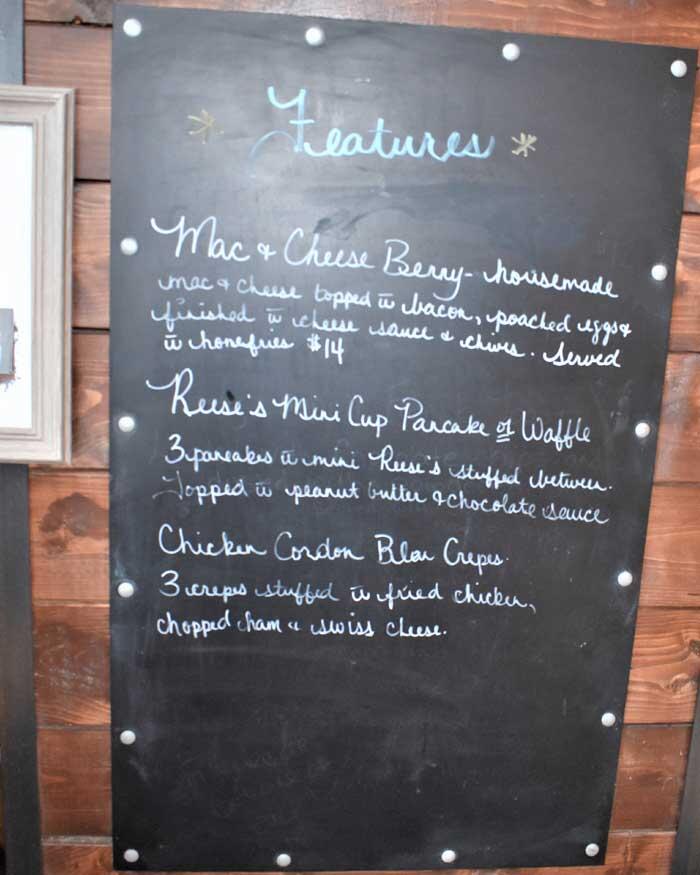 Features
Mac & Cheese Benny - housemade
mac & cheese topped w bacon, poached eggs &
finished w cheese sauce & chives. Served
w homefries $14
Reese's Mini Cup Pancake or Waffle
3 pancakes w mini Reese's stuffed between.
Topped w peanut butter & chocolate sauce
Chicken Cordon Bleu Crepes.
3 crepes stuffed w fried chicken,
chopped ham & swiss cheese.